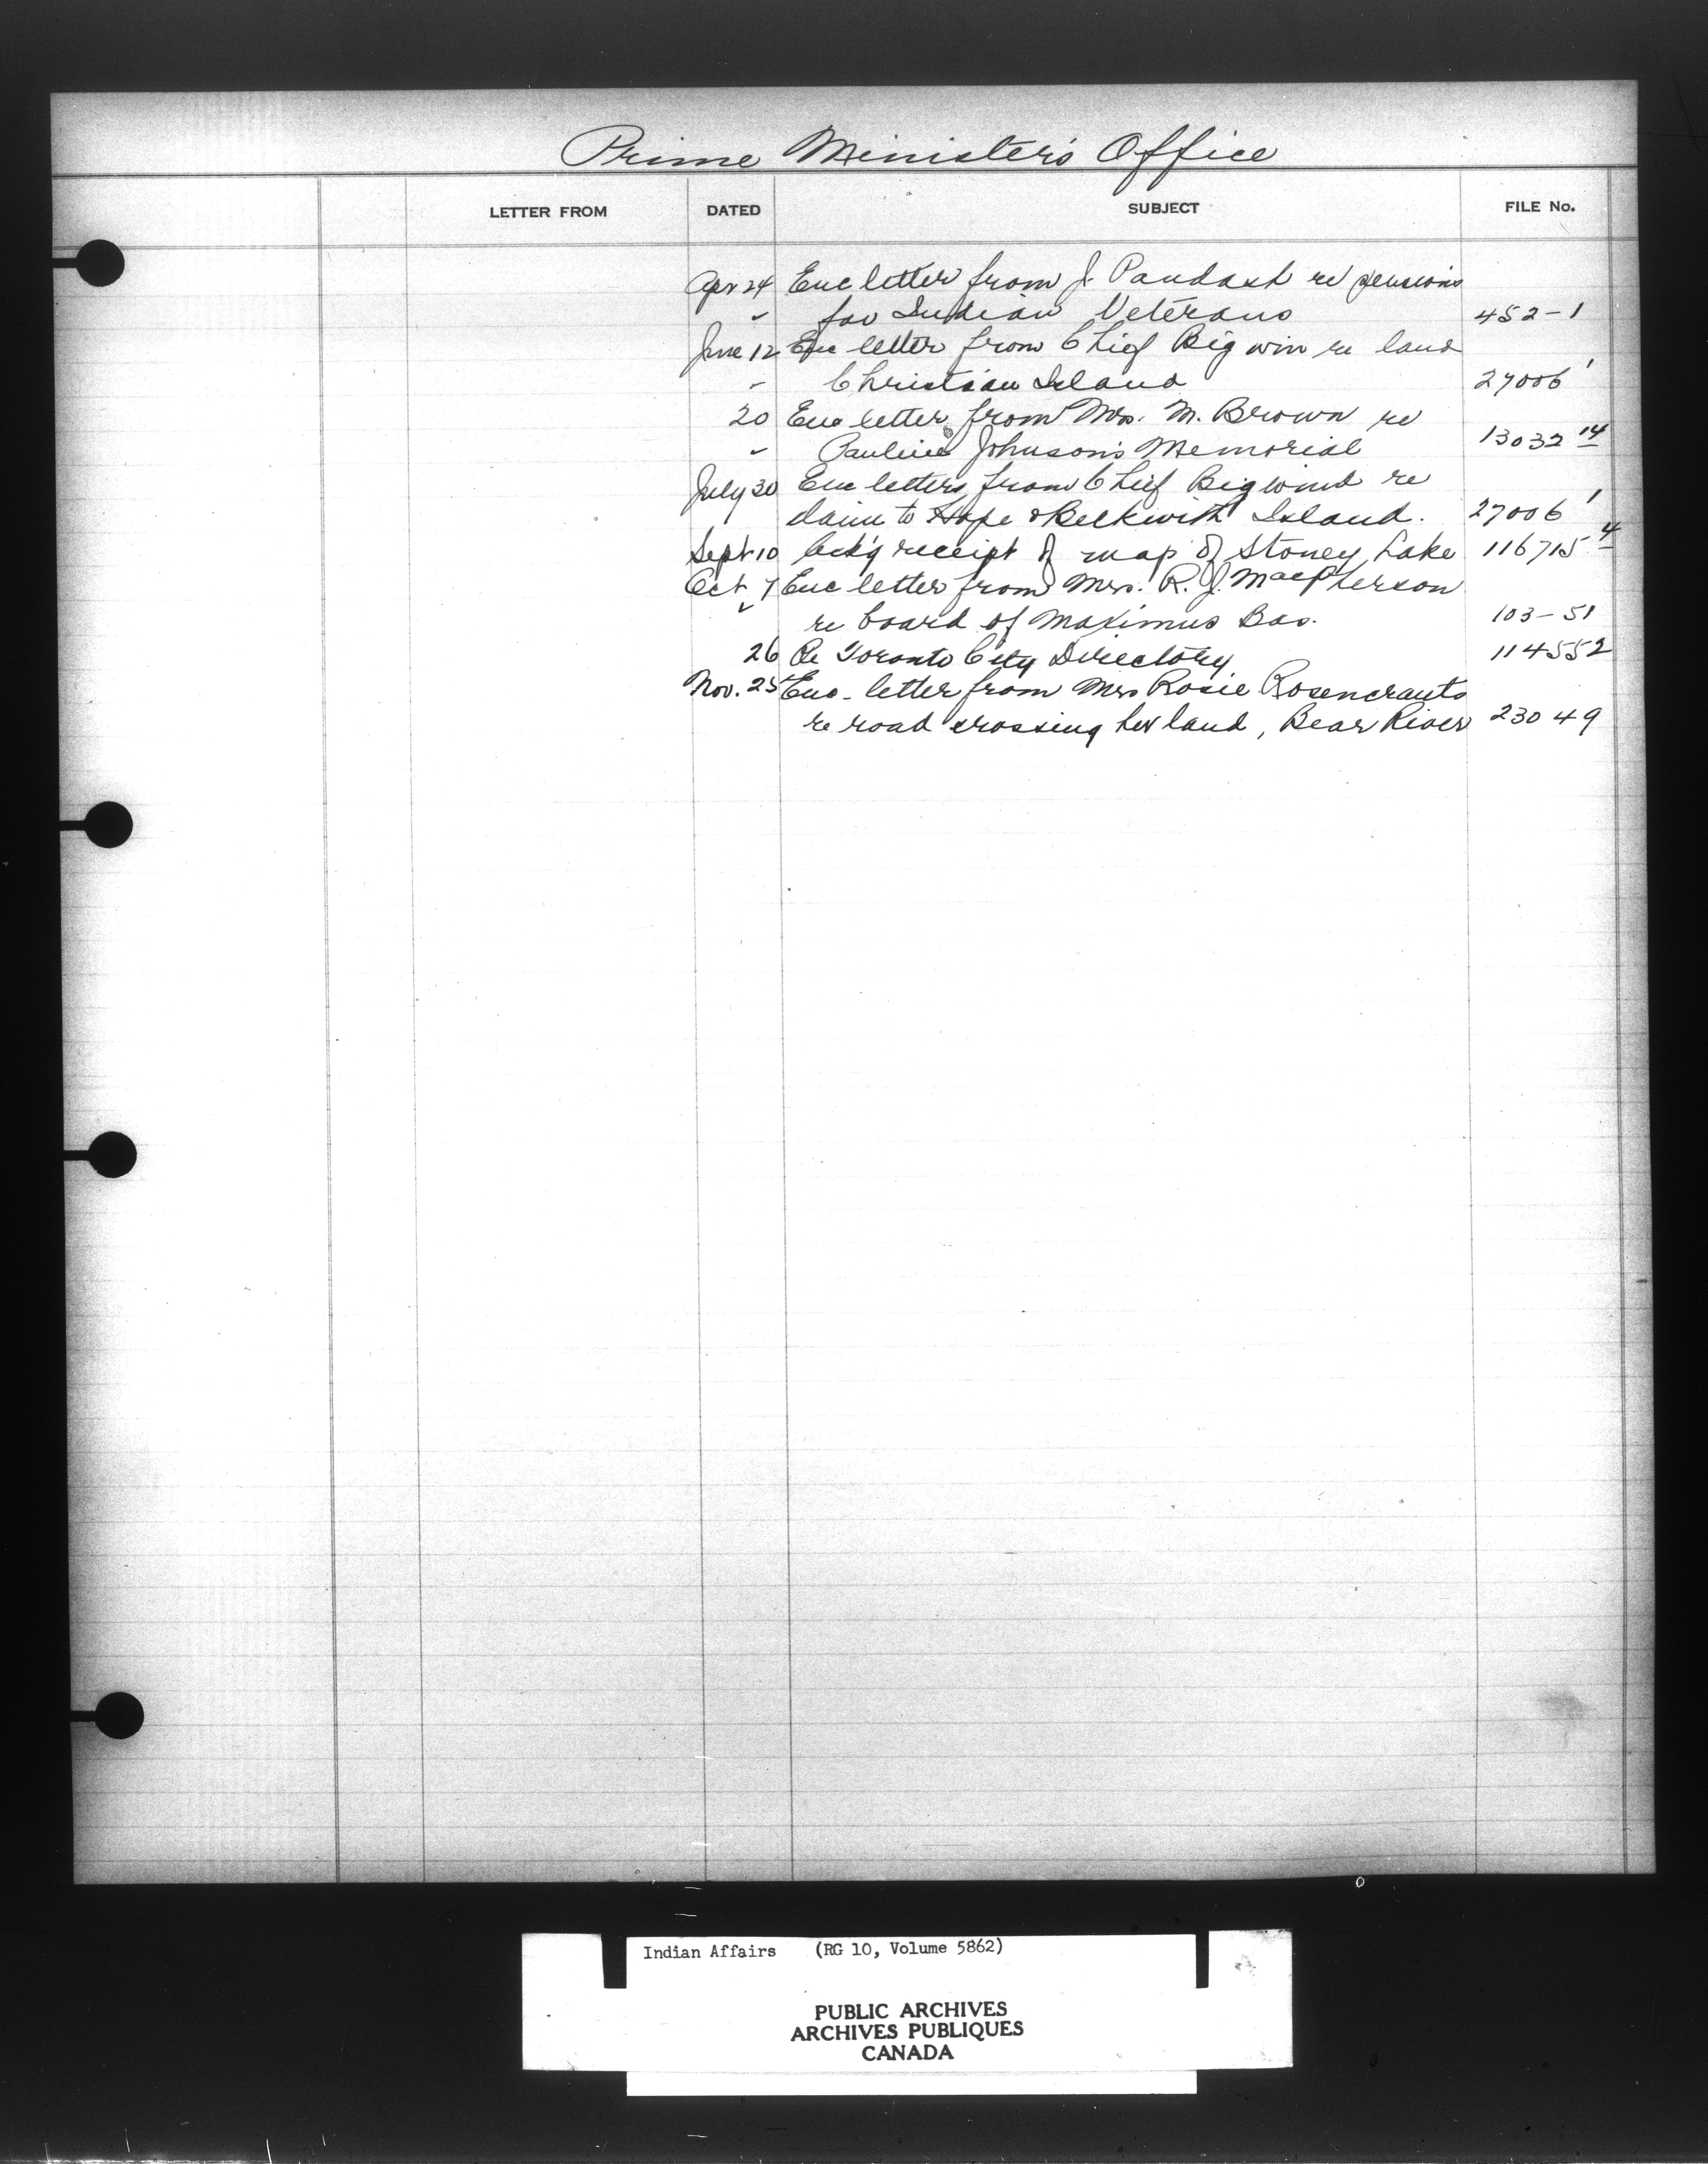 Prime Minister's Office
LETTER FROM DATED SUBJECT FILE No.
Apr 24 Enc letter from J. Paudash re pensions
" for Indian Veterans 452-1
June 12 Enc letter from Chief Big win re land
" Christian Island 27006 1
20 Enc letter from Mrs. M. Brown re
" Pauline Johnson's Memorial 13032 14
July 30 Enc letters from Chief Bigwind re
claim to Hope & Beckwith Island. 27006 1
Sept 10 Ack'g receipt of map of Stoney Lake 116715 4
Oct 7 Enc letter from Mrs. R. J. MacPherson
" re board of Maximus Bas. 103-51
26 Re Toronto City Directory 114552
Nov. 25 Enc. letter from Mrs Rosie Rosencrants
re road crossing her land, Bear River 23049
Indian Affairs (RG 10, Volume 5862)
PUBLIC ARCHIVES
ARCHIVES PUBLIQUES
CANADA